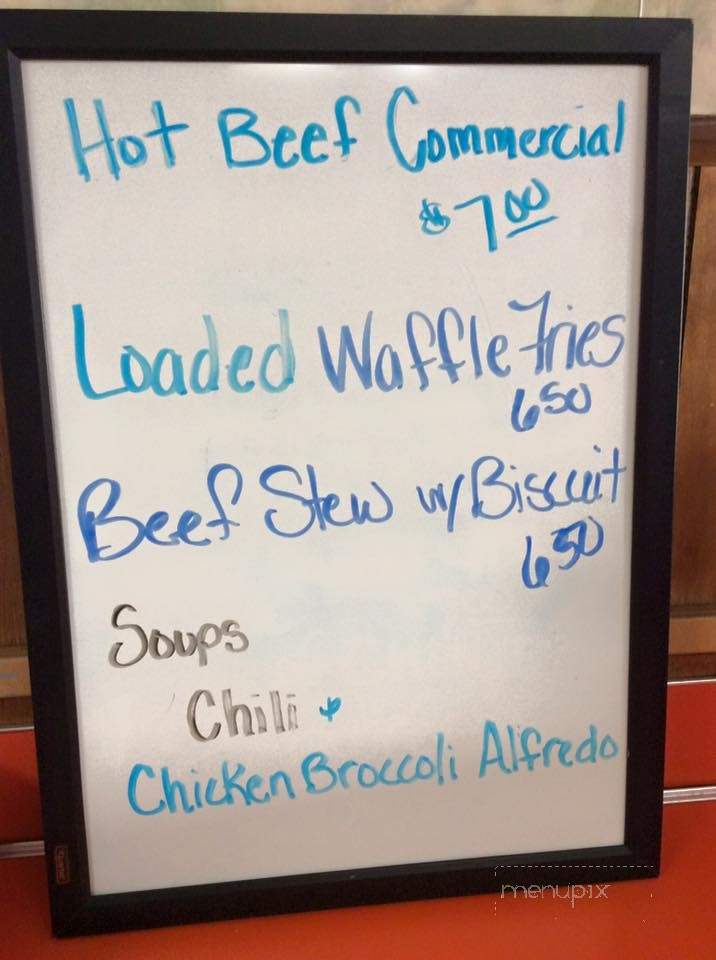 Hot Beef Commercial
$7.00
Loaded Waffle Fries
650
Beef Stew w/ Biscuit
650
Soups
Chili &
Chicken Broccoli Alfredo
menupix